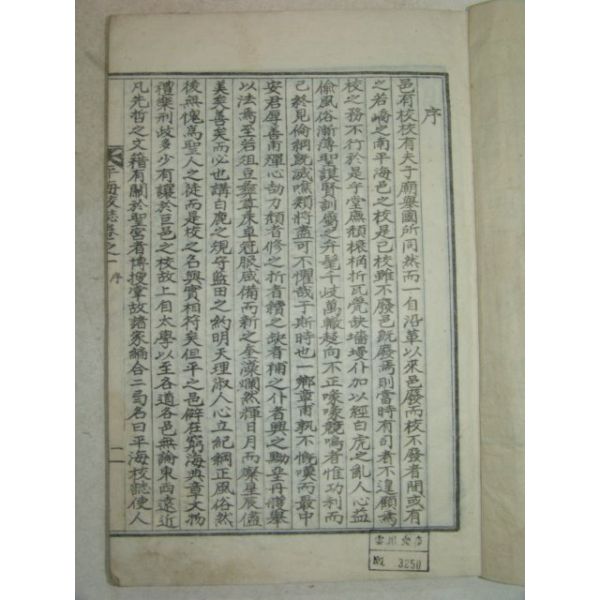 序
邑有校校有夫子廟擧國所同然而一自沿革以來邑廢而校不廢者間或有
之若嶠之南平海邑之校是已校雖不廢邑旣廢焉則當時有司者不遑顧焉
校之務不行於是乎堂廡頹榱桷折瓦甃缺墻墁仆加以經白虎之亂人心益
偸風俗漸薄聖謨賢訓屬之弁髦千歧萬轍趨向不正喙喙競鳴者惟功利而
已終見倫綱旣滅噍類將盡可不懼哉于斯時也一鄕章甫孰不慨嘆而最中
安君厚善甫殫心劼力頹者修之折者續之缺者補之仆者興之黝堊丹雘擧
以法焉至若俎豆罍尊床卓冠服咸備而新之金藻爛然輝日月而燦星辰儘
美矣善矣而必也講白鹿之規守藍田之約明天理淑人心立紀綱正風俗然
後無愧爲聖人之徒而是校之名與實相符矣但平之邑僻在窮海典章文物
禮樂刑政多少有讓於巨邑之校故上自太學以至各道各邑無論東西遠近
凡先哲之文籍有關於聖宮者博搜掌故諸家編合二局名曰平海校誌使人
平海校誌卷之一 序 一
№ 3250